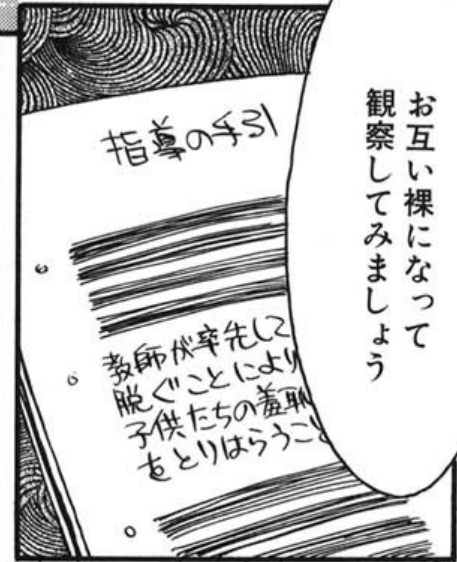 お互い裸になって
観察してみましょう
指導の手引
教師が率先して
脱ぐことにより
子供たちの羞恥
をとりはらうこと